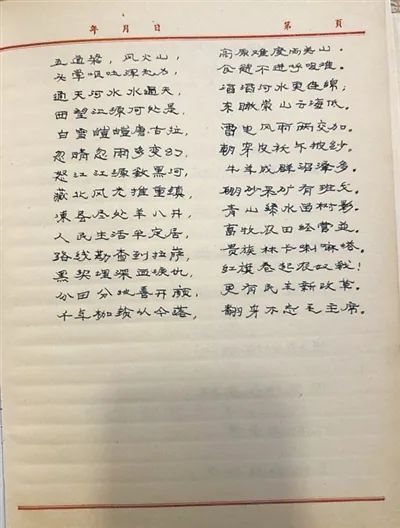 年 月 日 第 頁
五道梁，风火山， 高原难度两关山。
头晕呕吐浑无力， 不进呼吸难。
通天河水水通天， 滔滔河水更连绵；
西望江源何处是， 东眺 山云海底。
白雪皑皑唐古拉， 雷电风雨两交加。
忽晴忽雨多变幻， 朝穿皮袄午披纱。
怒江江源 黑河， 牛羊成群沼泽多。
藏北风光推重镇， 硼砂 矿有班戈。
处羊八井， 青山绿水 树影。
人民生活早定居， 畜牧农田经营并。
路线勘查到拉萨， 贵族林卡喇嘛塔。
黑契埋深血泪仇， 红旗卷起农奴戟！
分田分地喜开颜， 更有民主新改革。
千年枷锁从今落， 翻身不忘毛主席。